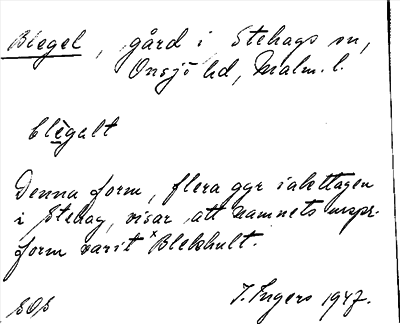 Blegel, gård i Stehags sn,
Onsjö hd, Malm. l.
blègalt
Denna form, flera ggr iakttagen
i Stehag, visar att namnets urspr.
form varit *Blekhult.
I. Ingers 1947.